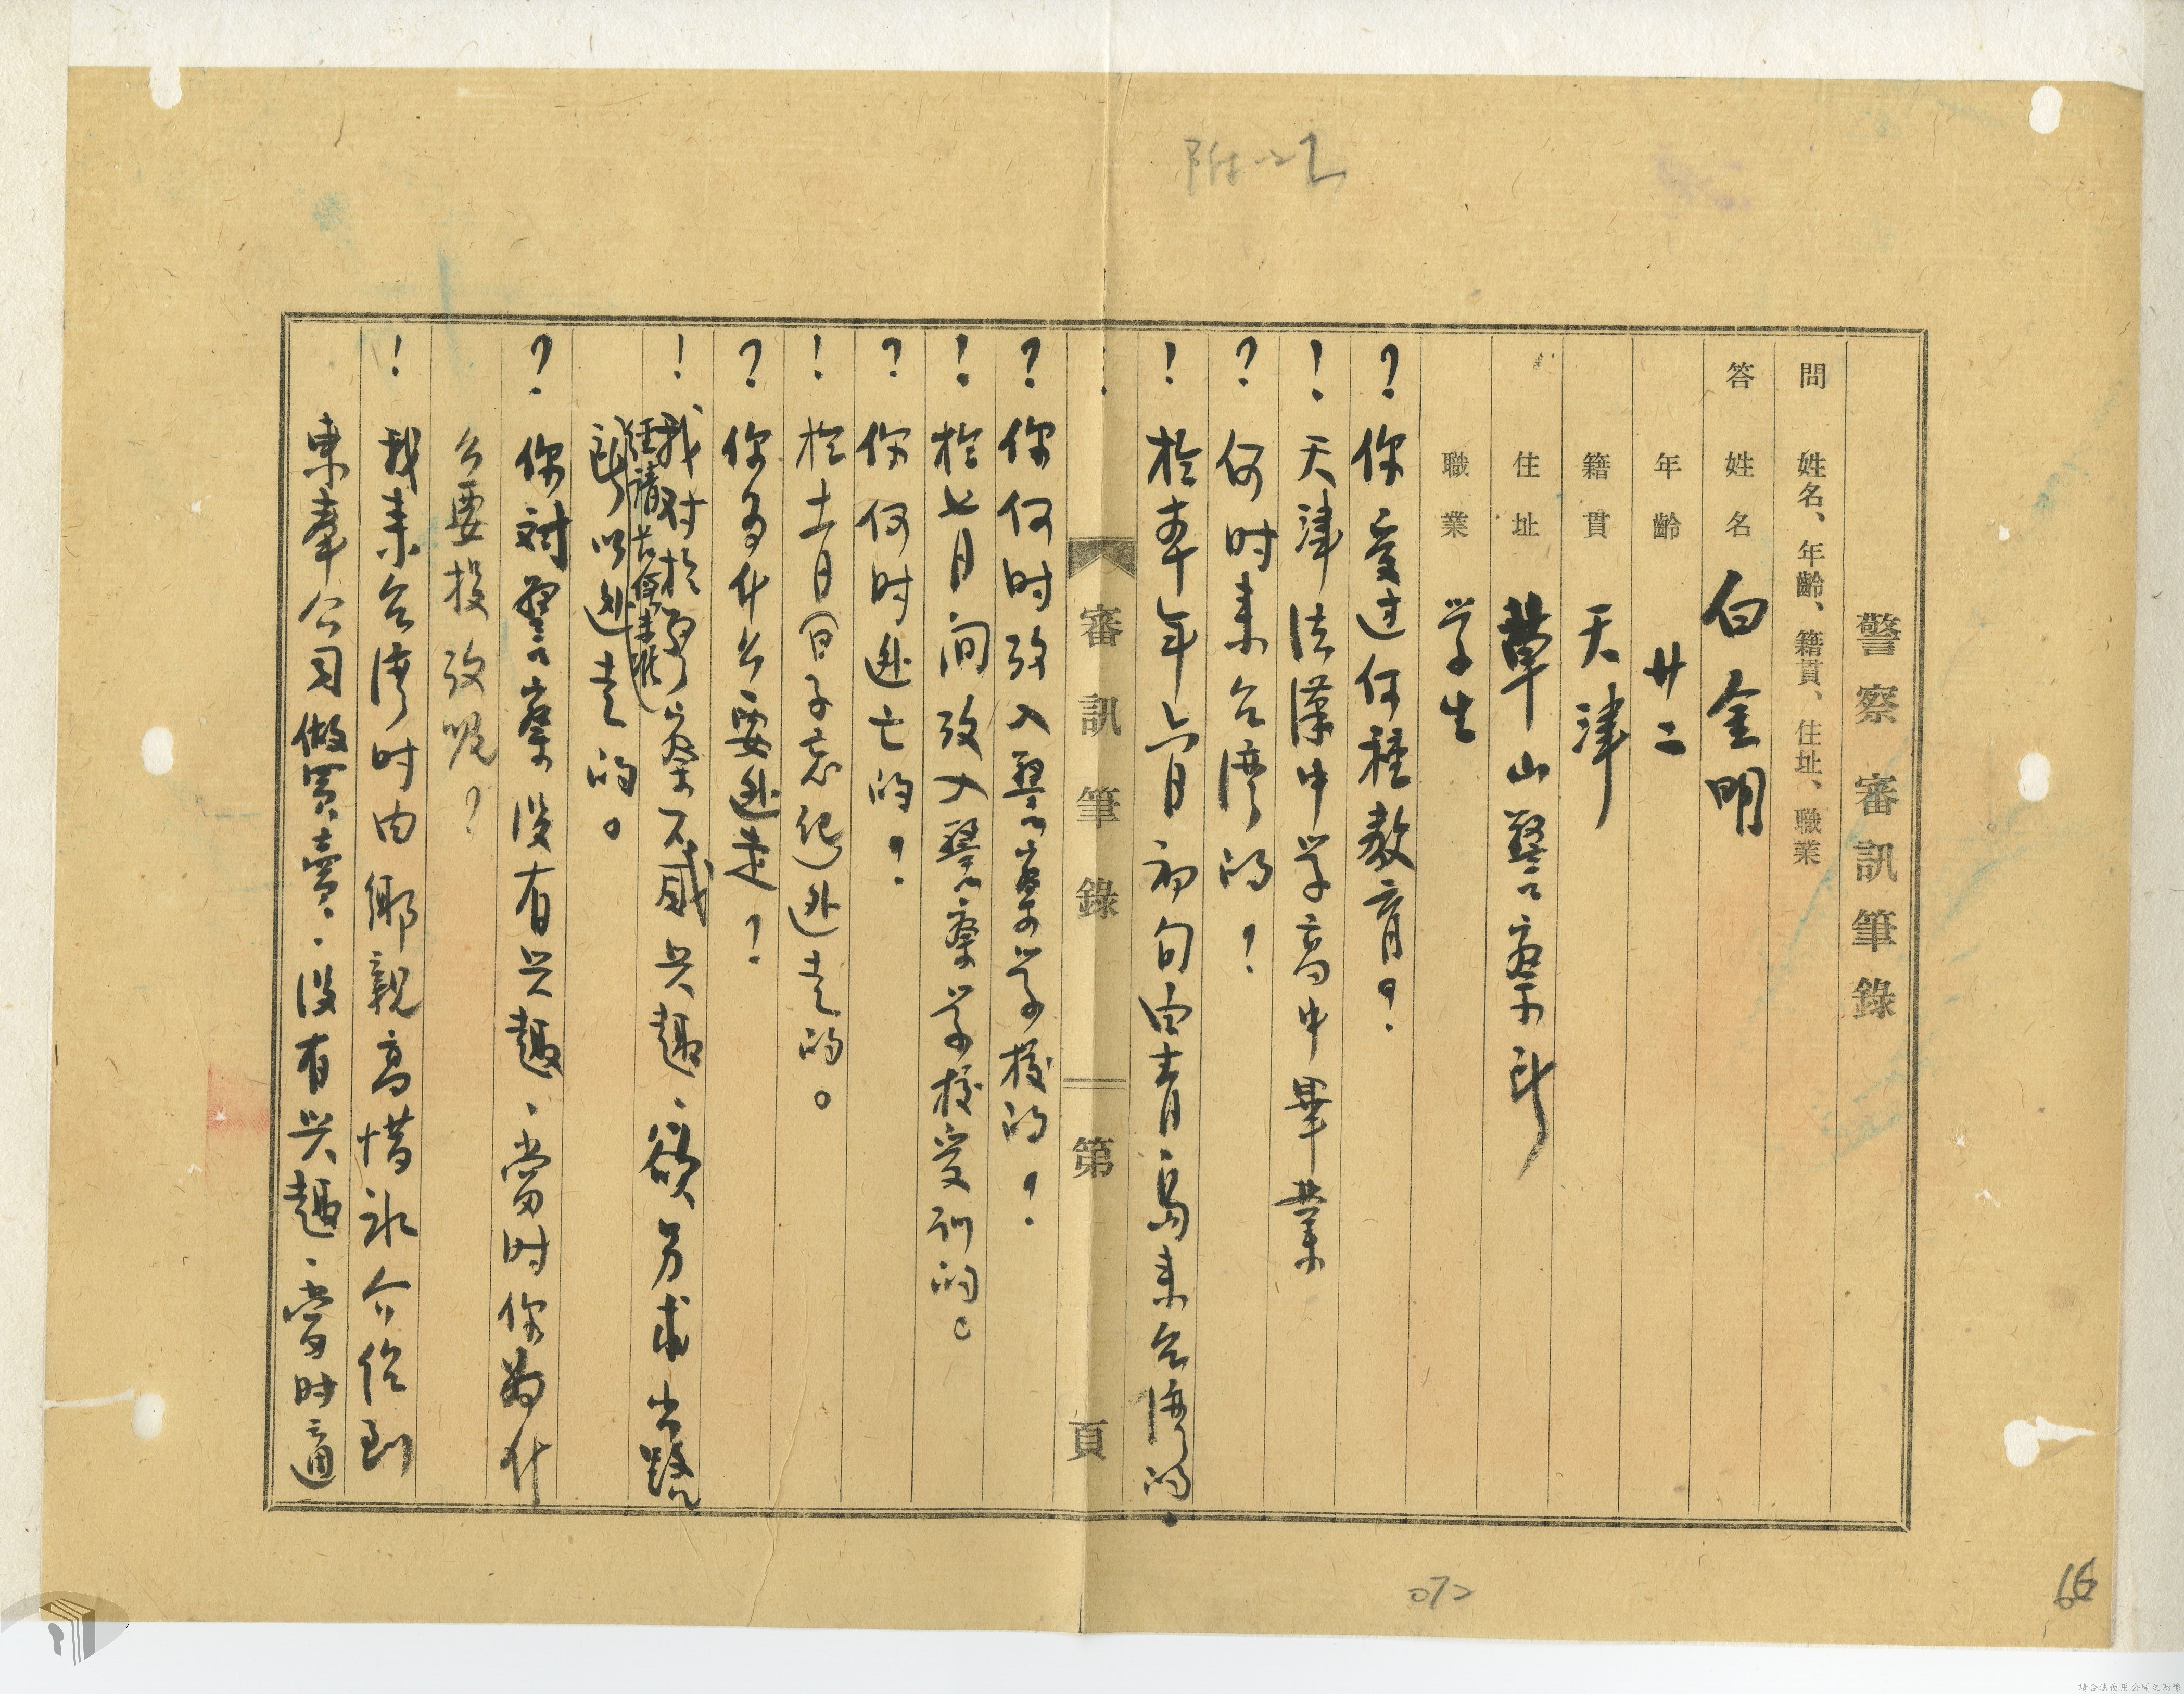 附二乙
警察審訊筆錄
問 姓名、年齡、籍貫、住址、職業
答 姓名 白金明
年齡 廿二
籍貫 天津
住址 草山警察所
職業 学生
? 你受过何種教育?
! 天津法漢中学高中畢業
? 何时来台湾的?
! 於本年六月初旬由青島来台湾的.
審訊筆錄 第 頁
? 你何时攷入警察学校的?
! 於七月间攷入警察学校受训的。
? 你何时逃亡的?
! 於十一月(日子忘记)逃走的。
? 你为什么要逃走?
! 我对於警察不感兴趣.欲另求出路
任请長假未准
所以逃走的。
? 你对警察没有兴趣.当时你為什
么要投攷呢?
! 我来台湾时由鄉親高惜冰介绍到
東奉公司做買賣.没有兴趣.当时適
072
66
請合法使用公開之影像